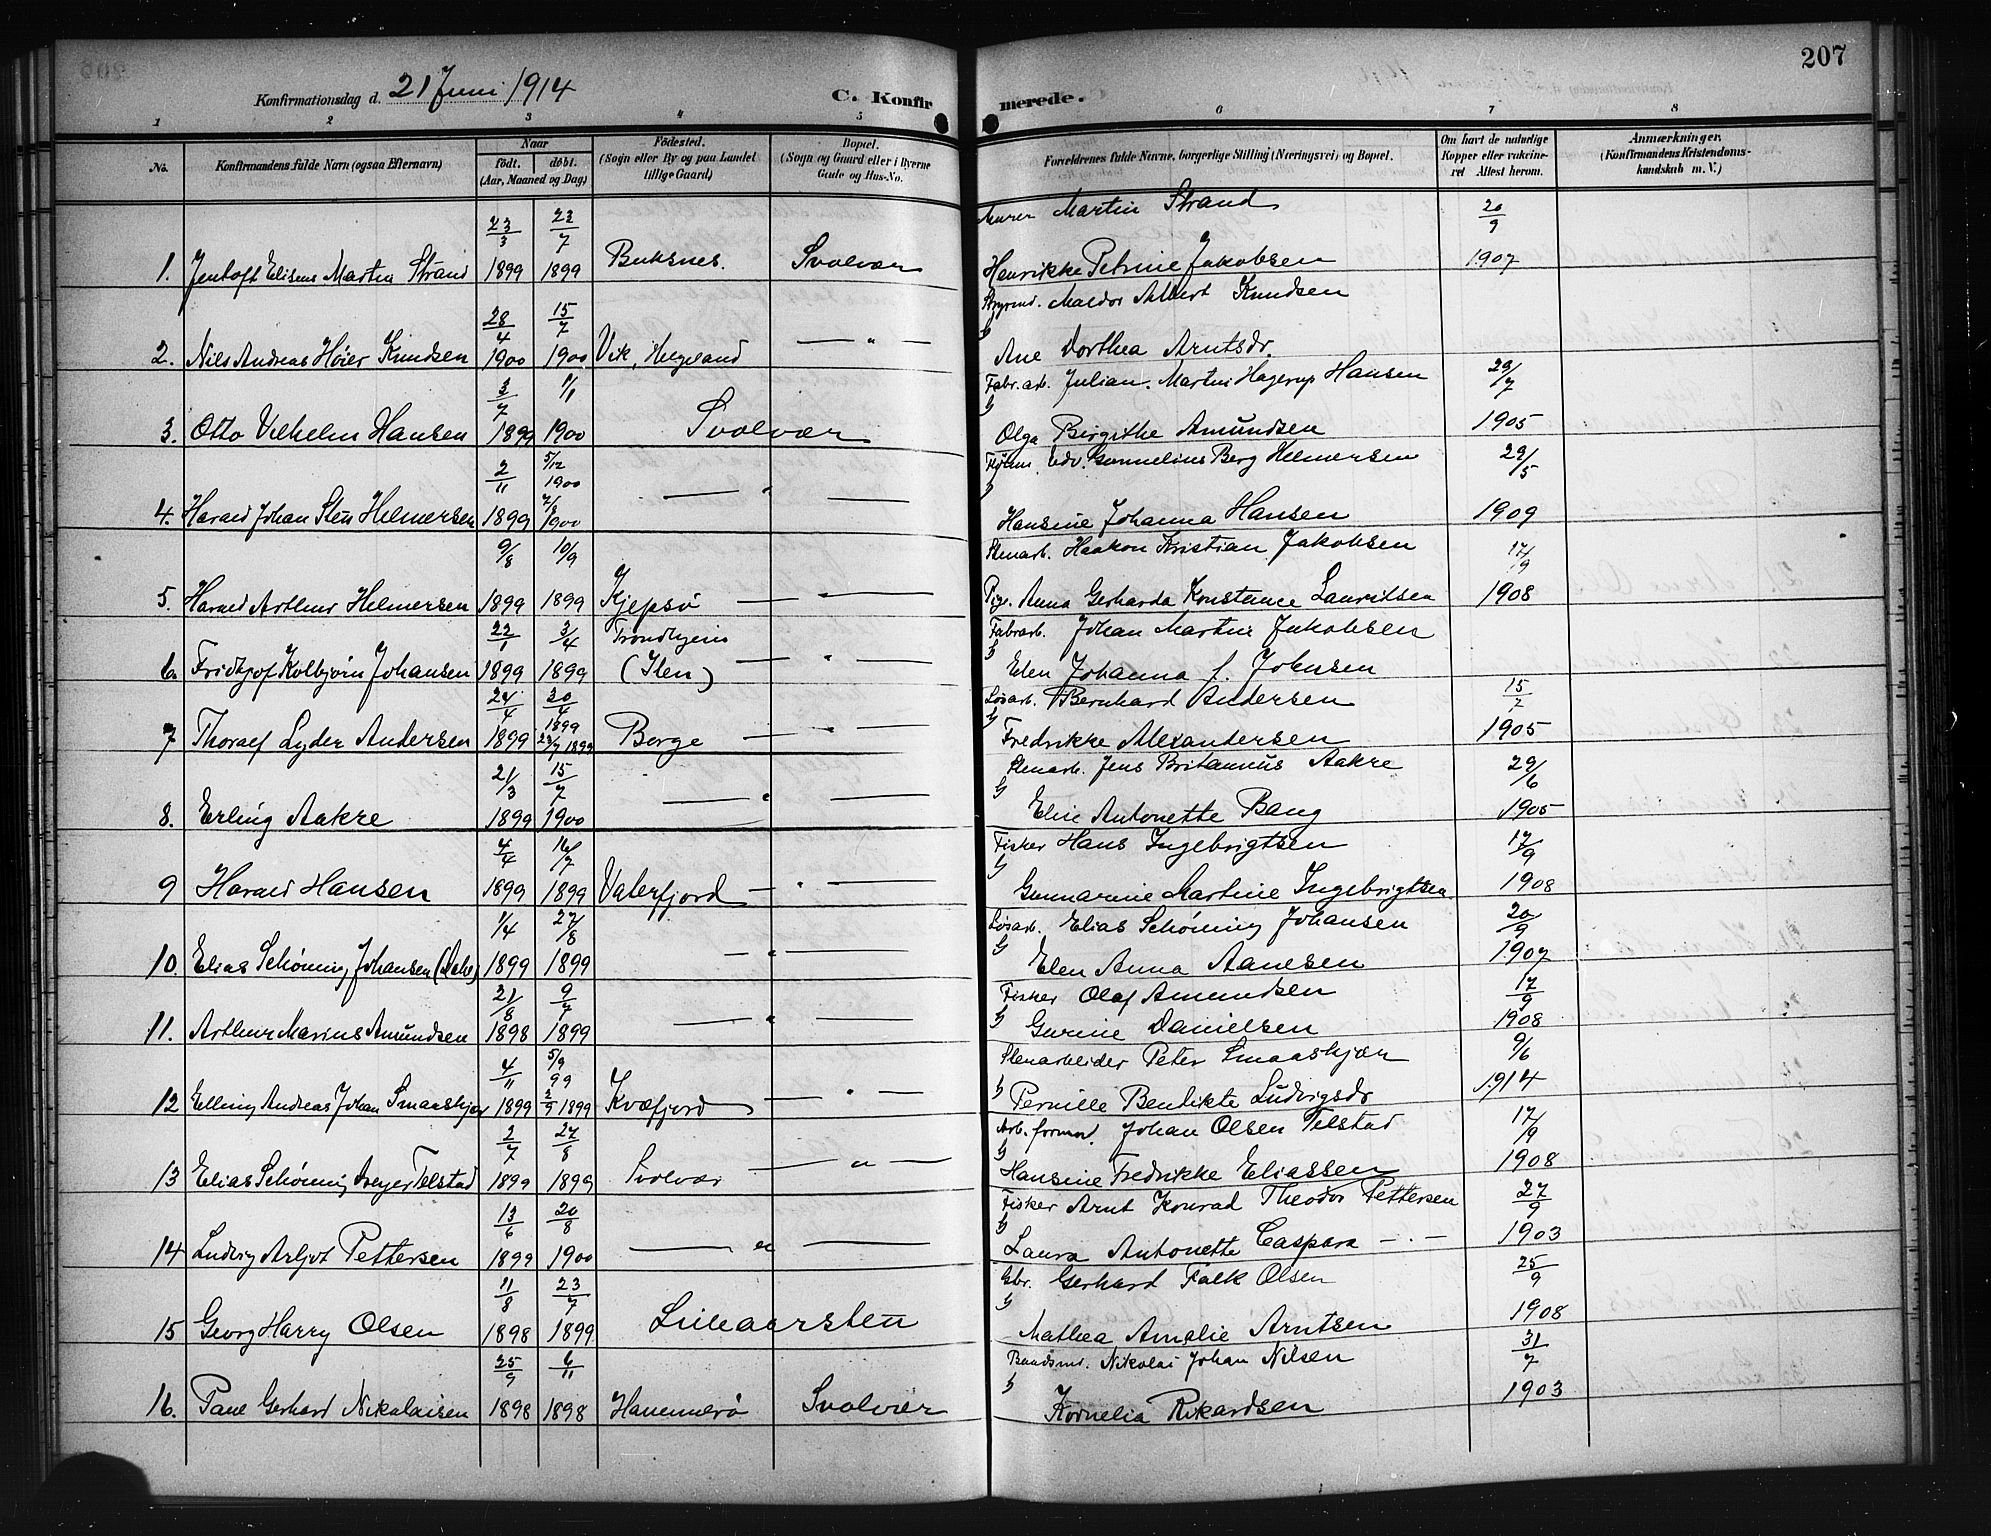 207
Konfirmationsdag d. 21 Juni 1914
C. Konfirmerede.
1 2 3 4 5 6 7 8
No.
Konfirmandens fulde Navn (ogsaa Efternavn)
Naar
født. døbt.
(Aar, Maaned og Dag)
Fødested.
(Sogn eller By og paa Landet
tillige Gaard)
Bopæl.
(Sogn og Gaard eller i Byerne
Gade og Hus-No.
Forældrenes fulde Navne, borgerlige Stilling (Næringsvei) og Bopæl.
Om havt de naturlige
Kopper eller vakcine-
ret Attest herom.
Anmærkninger.
(Konfirmandens Kristendoms-
kundskab m. V.)
23/3 23/7 Murer Martin Strand 20/9
1. Jentoft Eliseus Martin Strand 1899 1899 Buksnes. Svolvær Henrikke Petrine Jakobsen 1907
28/4 15/7 Albert Knudsen
2. Nils Andreas Høier Knudsen 1900 1900 Vik, Helgeland — " — Ane Dorthea Arntsdr.
3/7 1/1 Fabr. arb. Julian Martin Hagerup Hansen 29/7
3. Otto Vilhelm Hansen 1899 1900 Svolvær Olga Birgithe Amundsen 1905
2/11 5/12 1900 Edv. Kornelius Berg Helmersen 29/5
4. Harald Johan Sten Helmersen 1899 1900 — " — Hansine Johanna Hansen 1909
9/8 10/9 Stenarb. Haakon Kristian Jakobsen 17/9
5. Harald Arthur Helmersen 1899 1899 Kjepsø — " — Pige. Anna Gerharda Konstance Lauritsen 1908
22/1 3/4 Trondhjem Fabrarb. Johan Martin Jakobsen
6. Fridtjof Kolbjørn Johansen 1899 1899 (Ilen) — " — Elen Johanna f. Johnsen
24/4 30/4 Løsarb. Bernhard Andersen 15/7
1899
7 Thoralf Lyder Andersen 1899 23/7 1899 Borge — " — Fredrikke Alexandersen 1905
21/3 15/7 Stenarb. Jens Britannus Aakre 29/6
8. Erling Aakre 1899 1900 — " — Elin Antonette Bang 1905
4/4 16/7 Fisker Hans Ingebrigtsen 17/9
9 Harald Hansen 1899 1899 Vaterfjord — " — Gunnarine Martine Ingebrigtsen 1908
1/4 27/8 Løsarb. Elias Schøning Johansen 20/9
10. Elias Schøning Johansen 1899 1899 — " — Elen Anna Aanesen 1907
21/8 9/7 Fisker Olaf Amundsen 17/9
11. Arthur Marius Amundsen 1898 1899 — " — Gurine Danielsen 1908
4/11 5/9 99 Stenarbeider Peter Smaaskjær 9/6
12 Elling Andreas Johan Smaaskjær 1899 2/9 1899 Kvæfjord — " — Pernille Bendikte Ludvigsdr 1914
2/7 27/8 Arb. formd. Johan Olsen Telstad 17/9
13 Elias Schøning Telstad 1899 1899 Svolvær — " — Hansine Fredrikke Eliassen 1908
13/6 20/8 Fisker Arnt Konrad Theodor Pettersen 27/9
14 Ludvig Arljot Pettersen 1899 1900 — " — Laura Antonette Caspara — . — 1903
11/8 23/7 Gbr. Gerhard Falk Olsen 25/9
15 Georg Harry Olsen 1898 1899 Lilleaarsten Mathea Amalie Arntsen 1908
25/9 6/11 Nikolai Johan Nilsen 31/7
16. Paul Gerhard Nikolaisen 1898 1898 Hammerø Svolvær Kornelia Rikardsen 1903